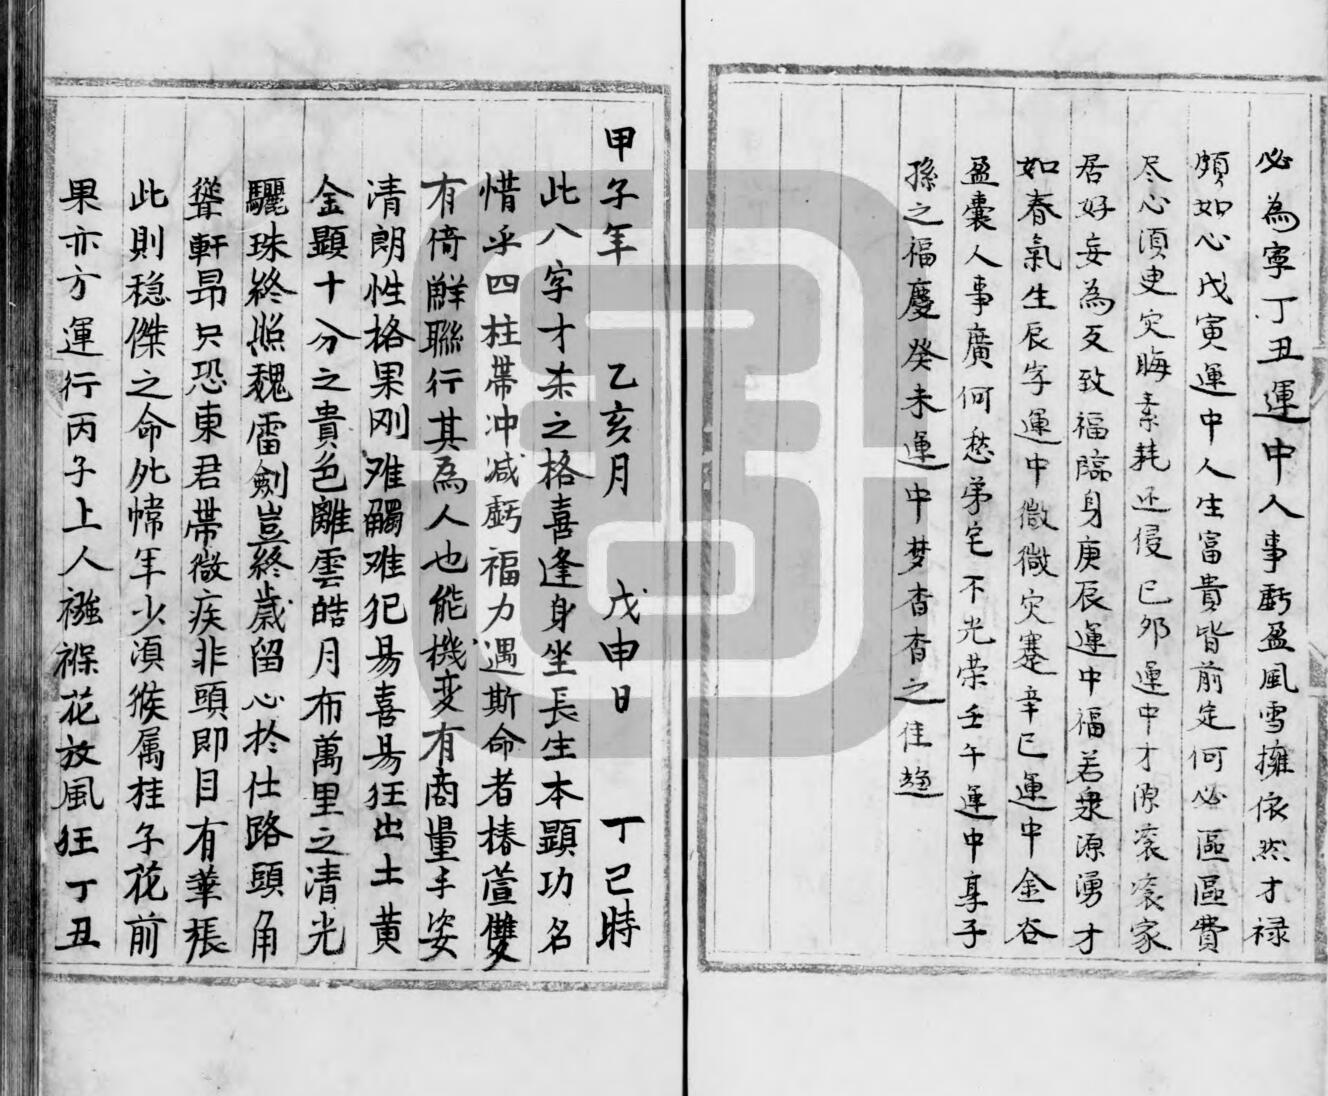 必為寧丁丑運中人事虧盈風雪擁依然才禄
頗如心戊寅運中人生富貴皆前定何必區區費
尽心須叟灾晦素耗还侵己夘運中才源滚滚家
居好妄為反致福臨身庚辰運中福若泉源湧才
如春氣生辰字運中微微灾蹇辛巳運中金谷
盈囊人事廣何愁弟宅不光荣壬午運中享子
孫之福慶癸未運中梦杳杳之佳趣
甲子年 乙亥月 戊申日 丁巳時
此八字才杀之格喜逢身坐長生本顕功名
惜乎四柱帯冲减虧福力遇斯命者椿萱雙
有倚鮮聯行其為人也能機变有商量手姿
清朗性格果刚难觸难犯易喜易狂出土黄
金顕十分之貴色離雲皓月布萬里之清光
驪珠終照魏雷劍豈終歲留心於仕路頭角
聳軒昂只恐東君帯微疾非頭即目有華振
此則稳傑之命死幃年少湏猴属挂子花前
果亦方運行丙子上人襁褓花放風狂丁丑